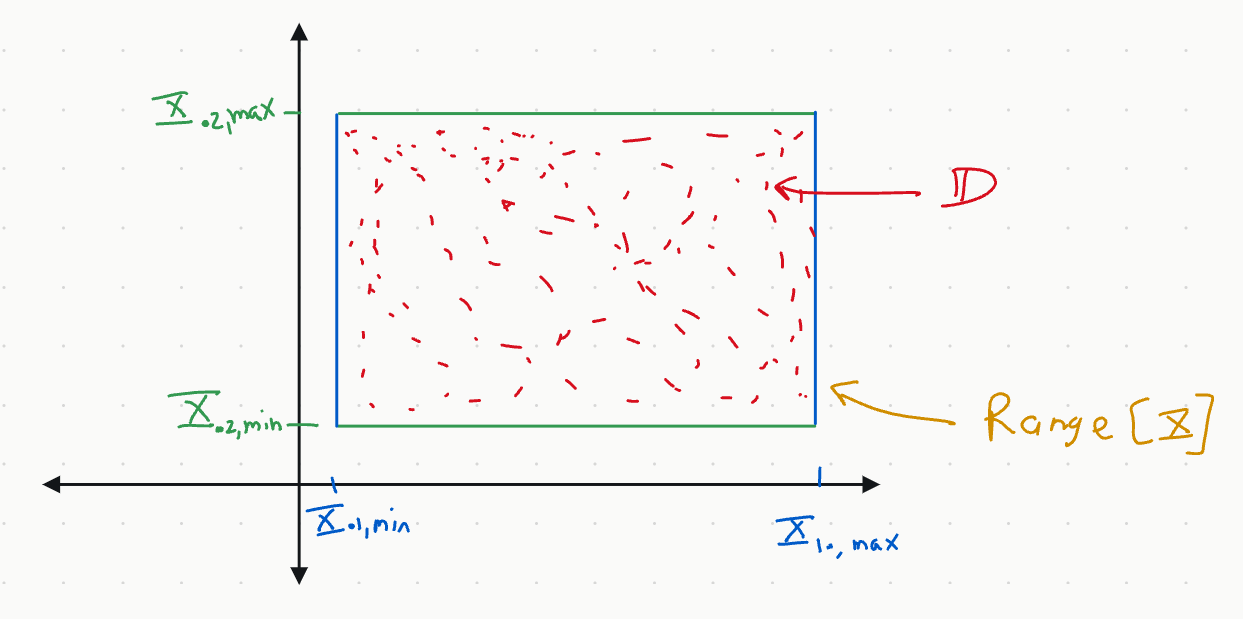 X.2,max
D
X.2,min
Range [X]
X.1,min
X1.,max